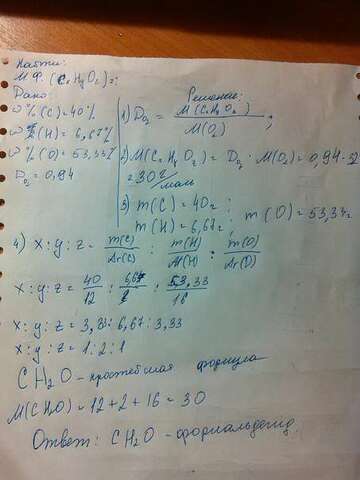 Найти:
М.Ф. (CxHyOz)-?
Дано:
ω%(C)=40%
ω%(H)=6,67%
ω%(O)=53,33%
D O2=0,94
Решение:
1) D O2 = M(CxHyOz) / M(O2) ;
2) M(CxHyOz) = D O2 · M(O2) = 0,94·32
=30 г/моль
3) m(C)=40г ;
m(H)=6,67г ; m(O)=53,33г
4) x:y:z = m(C)/Ar(C) : m(H)/M(H) : m(O)/Ar(O)
x:y:z = 40/12 : 6,67/1 : 53,33/16
x:y:z = 3,33:6,67:3,33
x:y:z = 1:2:1
CH2O - простейшая формула
M(CH2O) = 12+2+16 = 30
Ответ: CH2O - формальдегид.